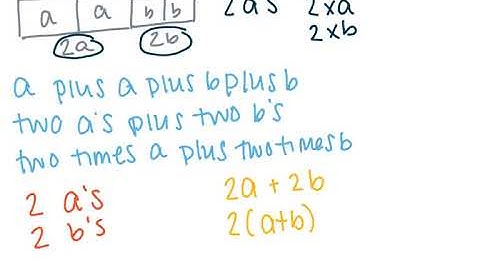 a a b b 2 a's 2xa
2a 2b 2xb
a plus a plus b plus b
two a's plus two b's
two times a plus two times b
2 a's 2a + 2b
2 b's 2(a+b)